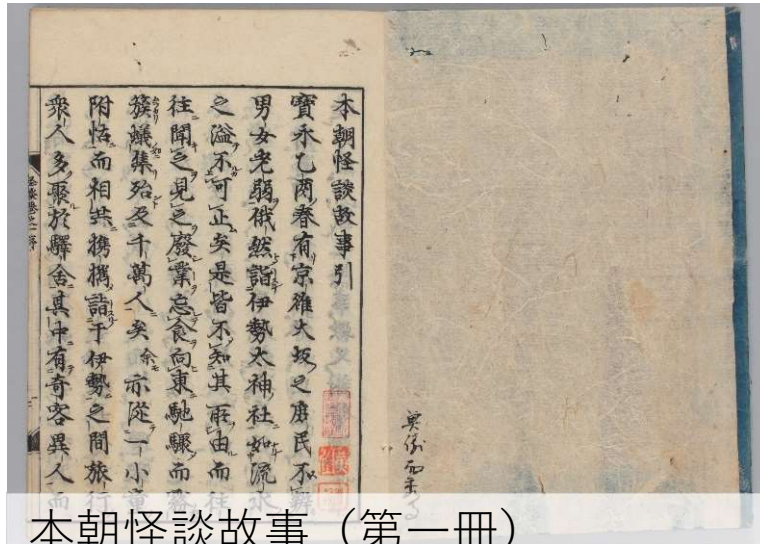 本朝怪談故事引
寶永乙酉春有京雒大坂之庶民不
男女老弱俄然詣伊勢大神社如流水
之溢不可止矣是皆不知其所由而往
往聞之見之廢業忘食向東馳驟而
簇蟻集殆及千萬人矣余亦從一小童
附恬而相共携携詣于伊勢之間旅行
衆人多聚於驛舎其中有奇客異人而
本朝怪談故事（第一冊）